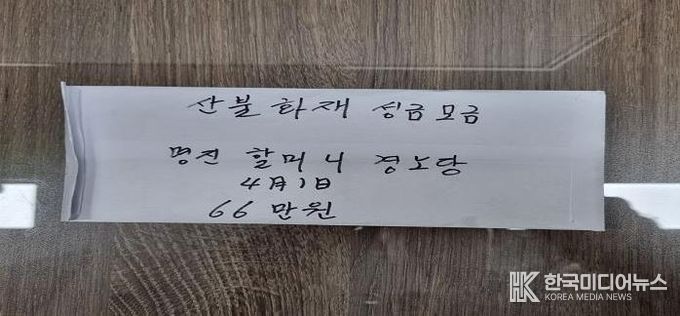 산불 화재 성금모금
명진 할머니 경노당
4月1日
66만원
한국미디어뉴스
KOREA MEDIA NEWS